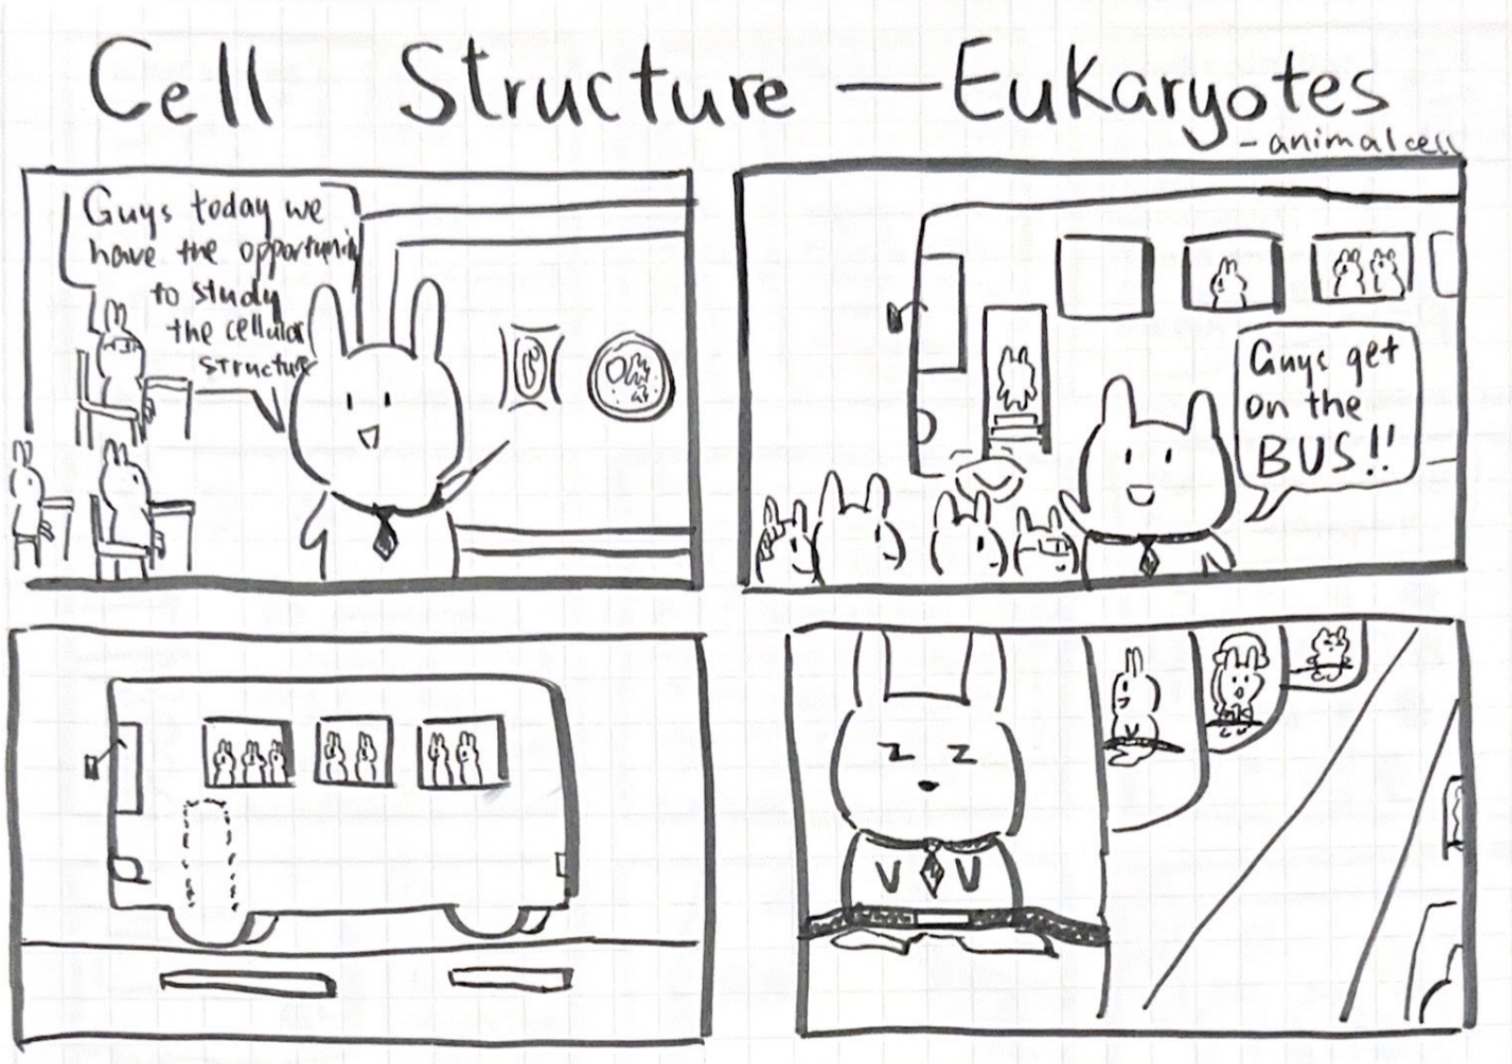 Cell Structure — Eukaryotes
- animal cell
Guys today we
have the opportunity
to study
the cellular
structure
Guys get
on the
BUS!!
z z